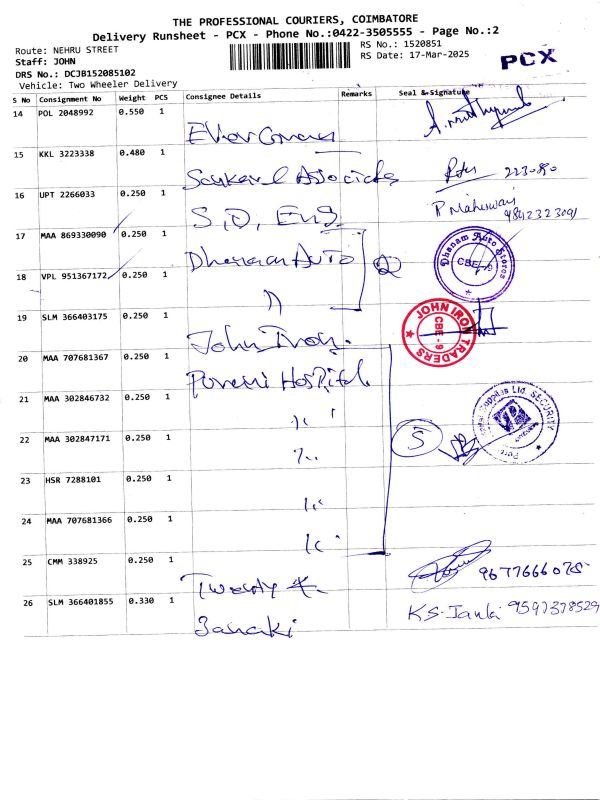 THE PROFESSIONAL COURIERS, COIMBATORE
Delivery Runsheet - PCX - Phone No.:0422-3505555 - Page No.:2
Route: NEHRU STREET
RS No.: 1520851
Staff: JOHN
RS Date: 17-Mar-2025
PCX
DRS No.: DCJB152085102
Vehicle: Two Wheeler Delivery
S No Consignment No Weight PCS Consignee Details Remarks Seal & Signature
14 POL 2048992 0.550 1
15 KKL 3223338 0.480 1 Associates
16 UPT 2266033 0.250 1 S.D. Eng
P Maheswari
9842323091
17 MAA 869330090 0.250 1 Dhanam Auto
Dhanam Auto Stores
CBE - 9
18 VPL 951367172 0.250 1 "
19 SLM 366403175 0.250 1 John Iron
JOHN IRON TRADERS
CBE - 9
20 MAA 707681367 0.250 1 Hospital
21 MAA 302846732 0.250 1
22 MAA 302847171 0.250 1
5
Ltd. SECURITY
23 HSR 7288101 0.250 1
24 MAA 707681366 0.250 1
25 CMM 338925 0.250 1
26 SLM 366401855 0.330 1 Janaki
KS. Janki 9597378529